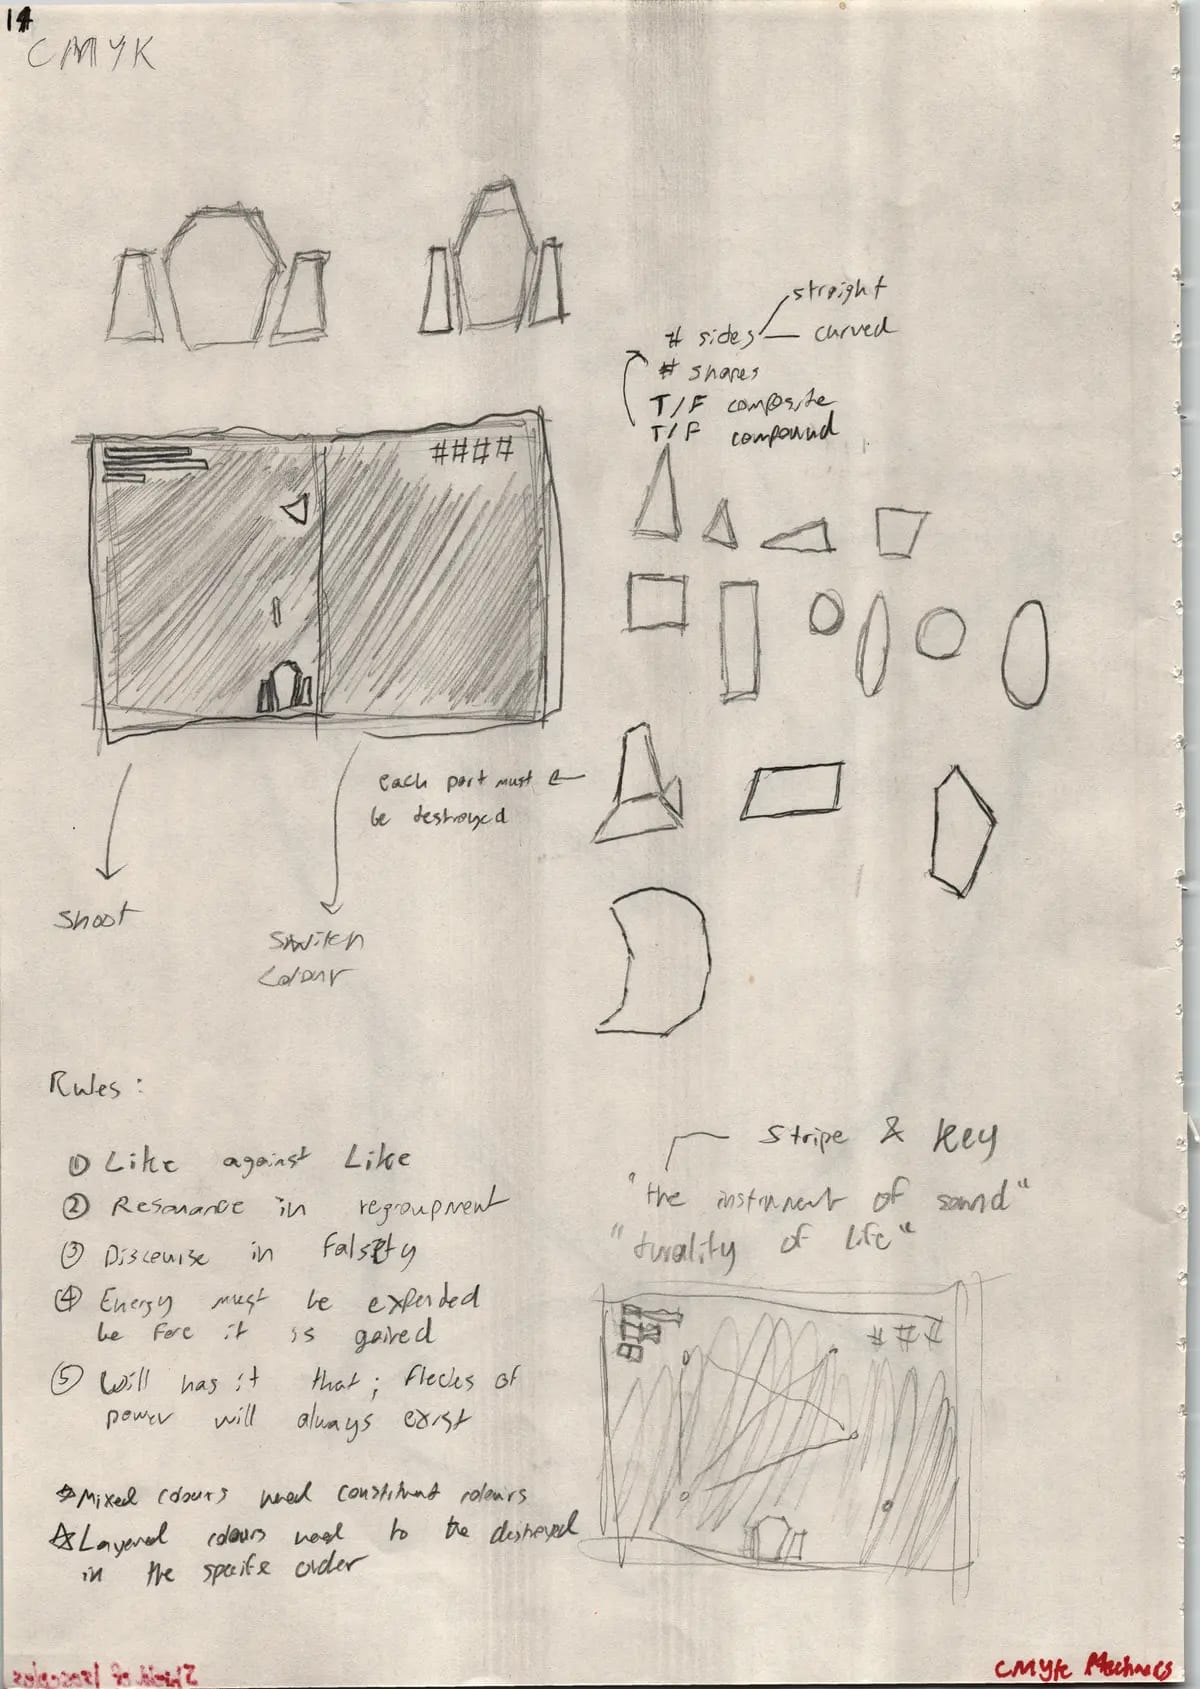 14
CMYK
straight
# sides
curved
# shapes
T/F composite
T/F compound
####
each part must
be destroyed
Shoot
Switch
Colour
Rules:
① Like against Like
② Resonance in regroupment
③ Disceuise in falsity
④ Energy must be expended
before it is gained
⑤ Will has it that; flecks of
power will always exist
☆ Mixed colours need constituent colours
☆ Layered colours need to be destroyed
in the specific order
Stripe & Key
"the instrument of sound"
"turality of life"
###
CMYK Mechanics